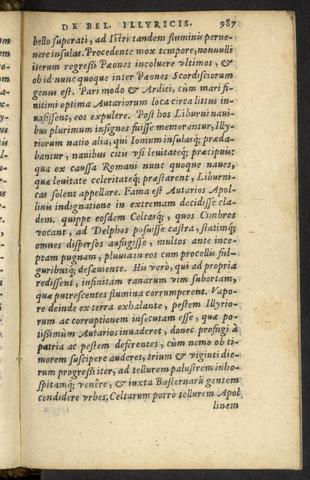 DE BEL. ILLYRICIS. 987
bello superati, ad Istri tandem fluminis perue-
nere insulas. Procedente mox tempore, nonnulli
iterum regressi Paeones incoluere vltimos, &
ob id nunc quoque inter Paeones Scordiscorum
genus est. Pari modo & Ardiei, cùm mari fi-
nitimi optima Autariorum loca circa littus in-
uasissent, eos expulere. Post hos Liburni naui-
bus plurimum insignes fuisse memorantur, Illy-
riorum natio alia, qui Ionium insulasq; praeda-
bantur, nauibus citis vsi leuitateq; praecipuis:
qua ex caussa Romani nunc quoque naues,
quae leuitate celeritateq; praestarent, Liburni-
cas solent appellare. Fama est Autarios Apol-
linis indignatione in extremam decidisse cla-
dem. quippe eosdem Celtasq; , quos Cimbros
vocant, ad Delphos posuisse castra, statimq;
omnes dispersos aufugisse, multos ante ince-
ptam pugnam, pluuia in eos cum procellis ful-
guribusq; desaeuiente. His verò, qui ad propria
redissent, infinitam ranarum vim subortam,
quae putrescentes flumina corrumperent. Vapo-
re deinde ex terra exhalante, pestem Illyrio-
rum ac corruptionem insecutam esse, quae po-
tissimùm Autarios inuaderet, donec profugi à
patria ac pestem deferentes, cùm nemo ob ti-
morem suscipere auderet, trium & viginti die-
rum progressi iter, ad tellurem palustrem inho-
spitamq; venêre, & iuxta Basternarū gentem
condidere vrbes. Celtarum porrò tellurem Apol
linem